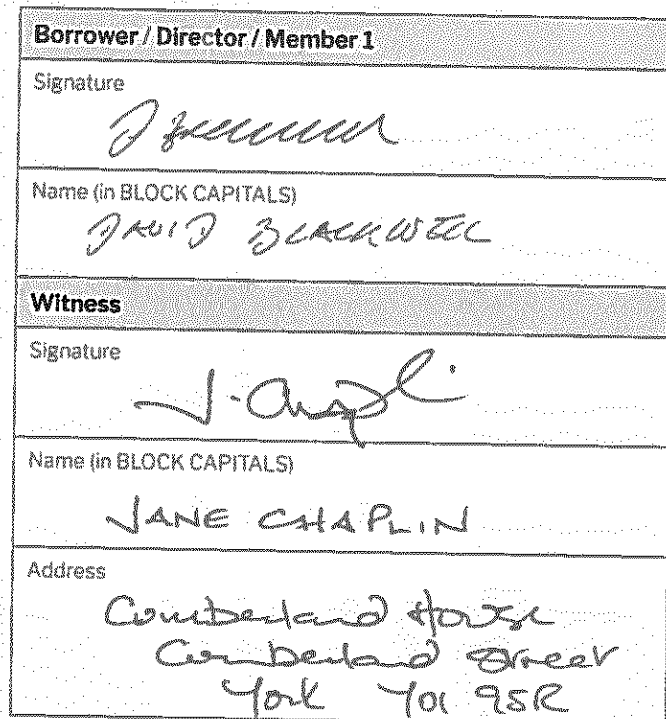 Borrower / Director / Member 1
Signature
Name (in BLOCK CAPITALS)
DAVID BLACKWELL
Witness
Signature
J. Chapli
Name (in BLOCK CAPITALS)
JANE CHAPLIN
Address
Cumberland House
Cumberland Street
York YO1 9SR